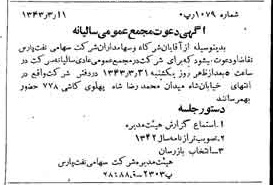 شماره ۱۰۷۹رپ۰ ۱۳۴۳ر۳ر۱۱
آگهی دعوت مجمع عمومی سالیانه
بدینوسیله از آقایان شرکاء و سهامداران شرکت سهامی نفت پارس
تقاضا و دعوت میشود که برای شرکت در مجمع عمومی عادی سالیانه که در
ساعت ۵ بعدازظهر روز یکشنبه ۱۳۴۳ر۳ر۳۱ در دفتر شرکت واقع در
انتهای خیابان شاه میدان محمد رضا شاه پهلوی کاشی ۷۷۸ حضور
بهم رسانند
دستور جلسه
۱ـ استماع گزارش هیئت مدیره
۲ـ تصویب ترازنامه سال ۱۳۴۲
۳ـ انتخاب بازرسان
هیئت مدیره شرکت سهامی نفت پارس